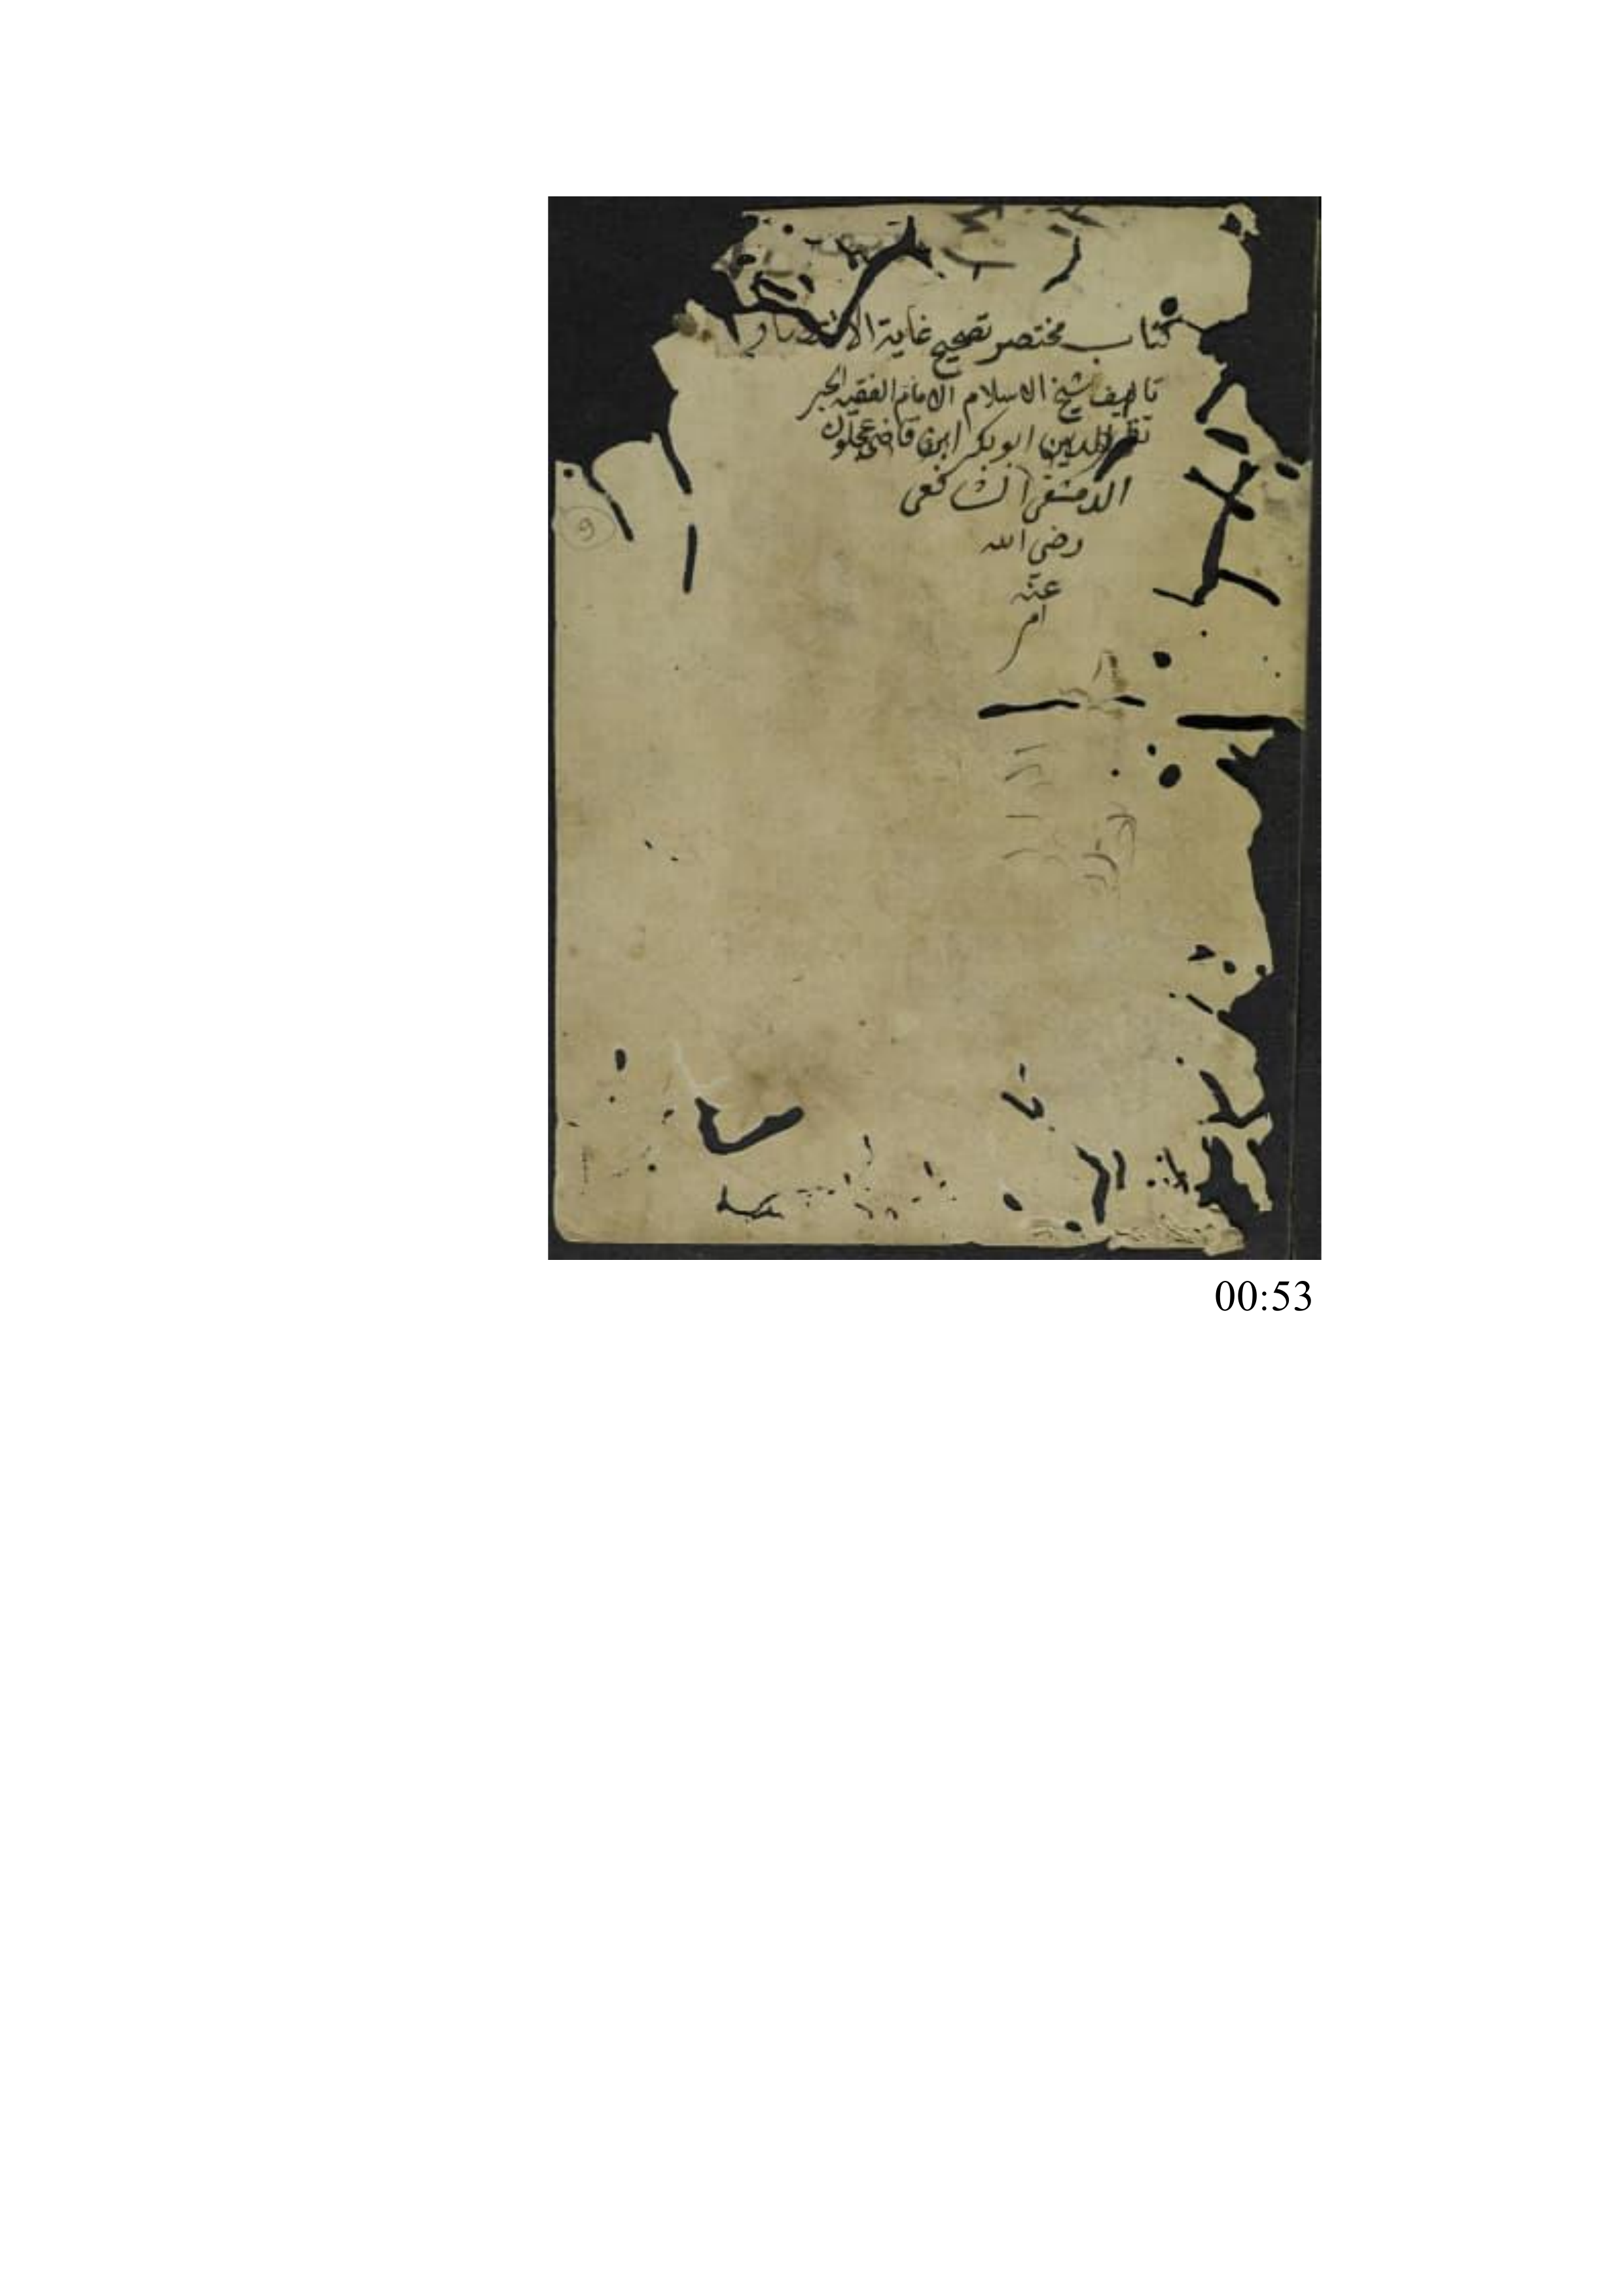 كتاب مختصر تصحيح غاية الاختصار
تاليف شيخ الاسلام الامام الفقيه الحبر
تقي الدين ابو بكر ابن قاضي عجلون
الدمشقي الشافعي
رضي الله
عنه
00:53